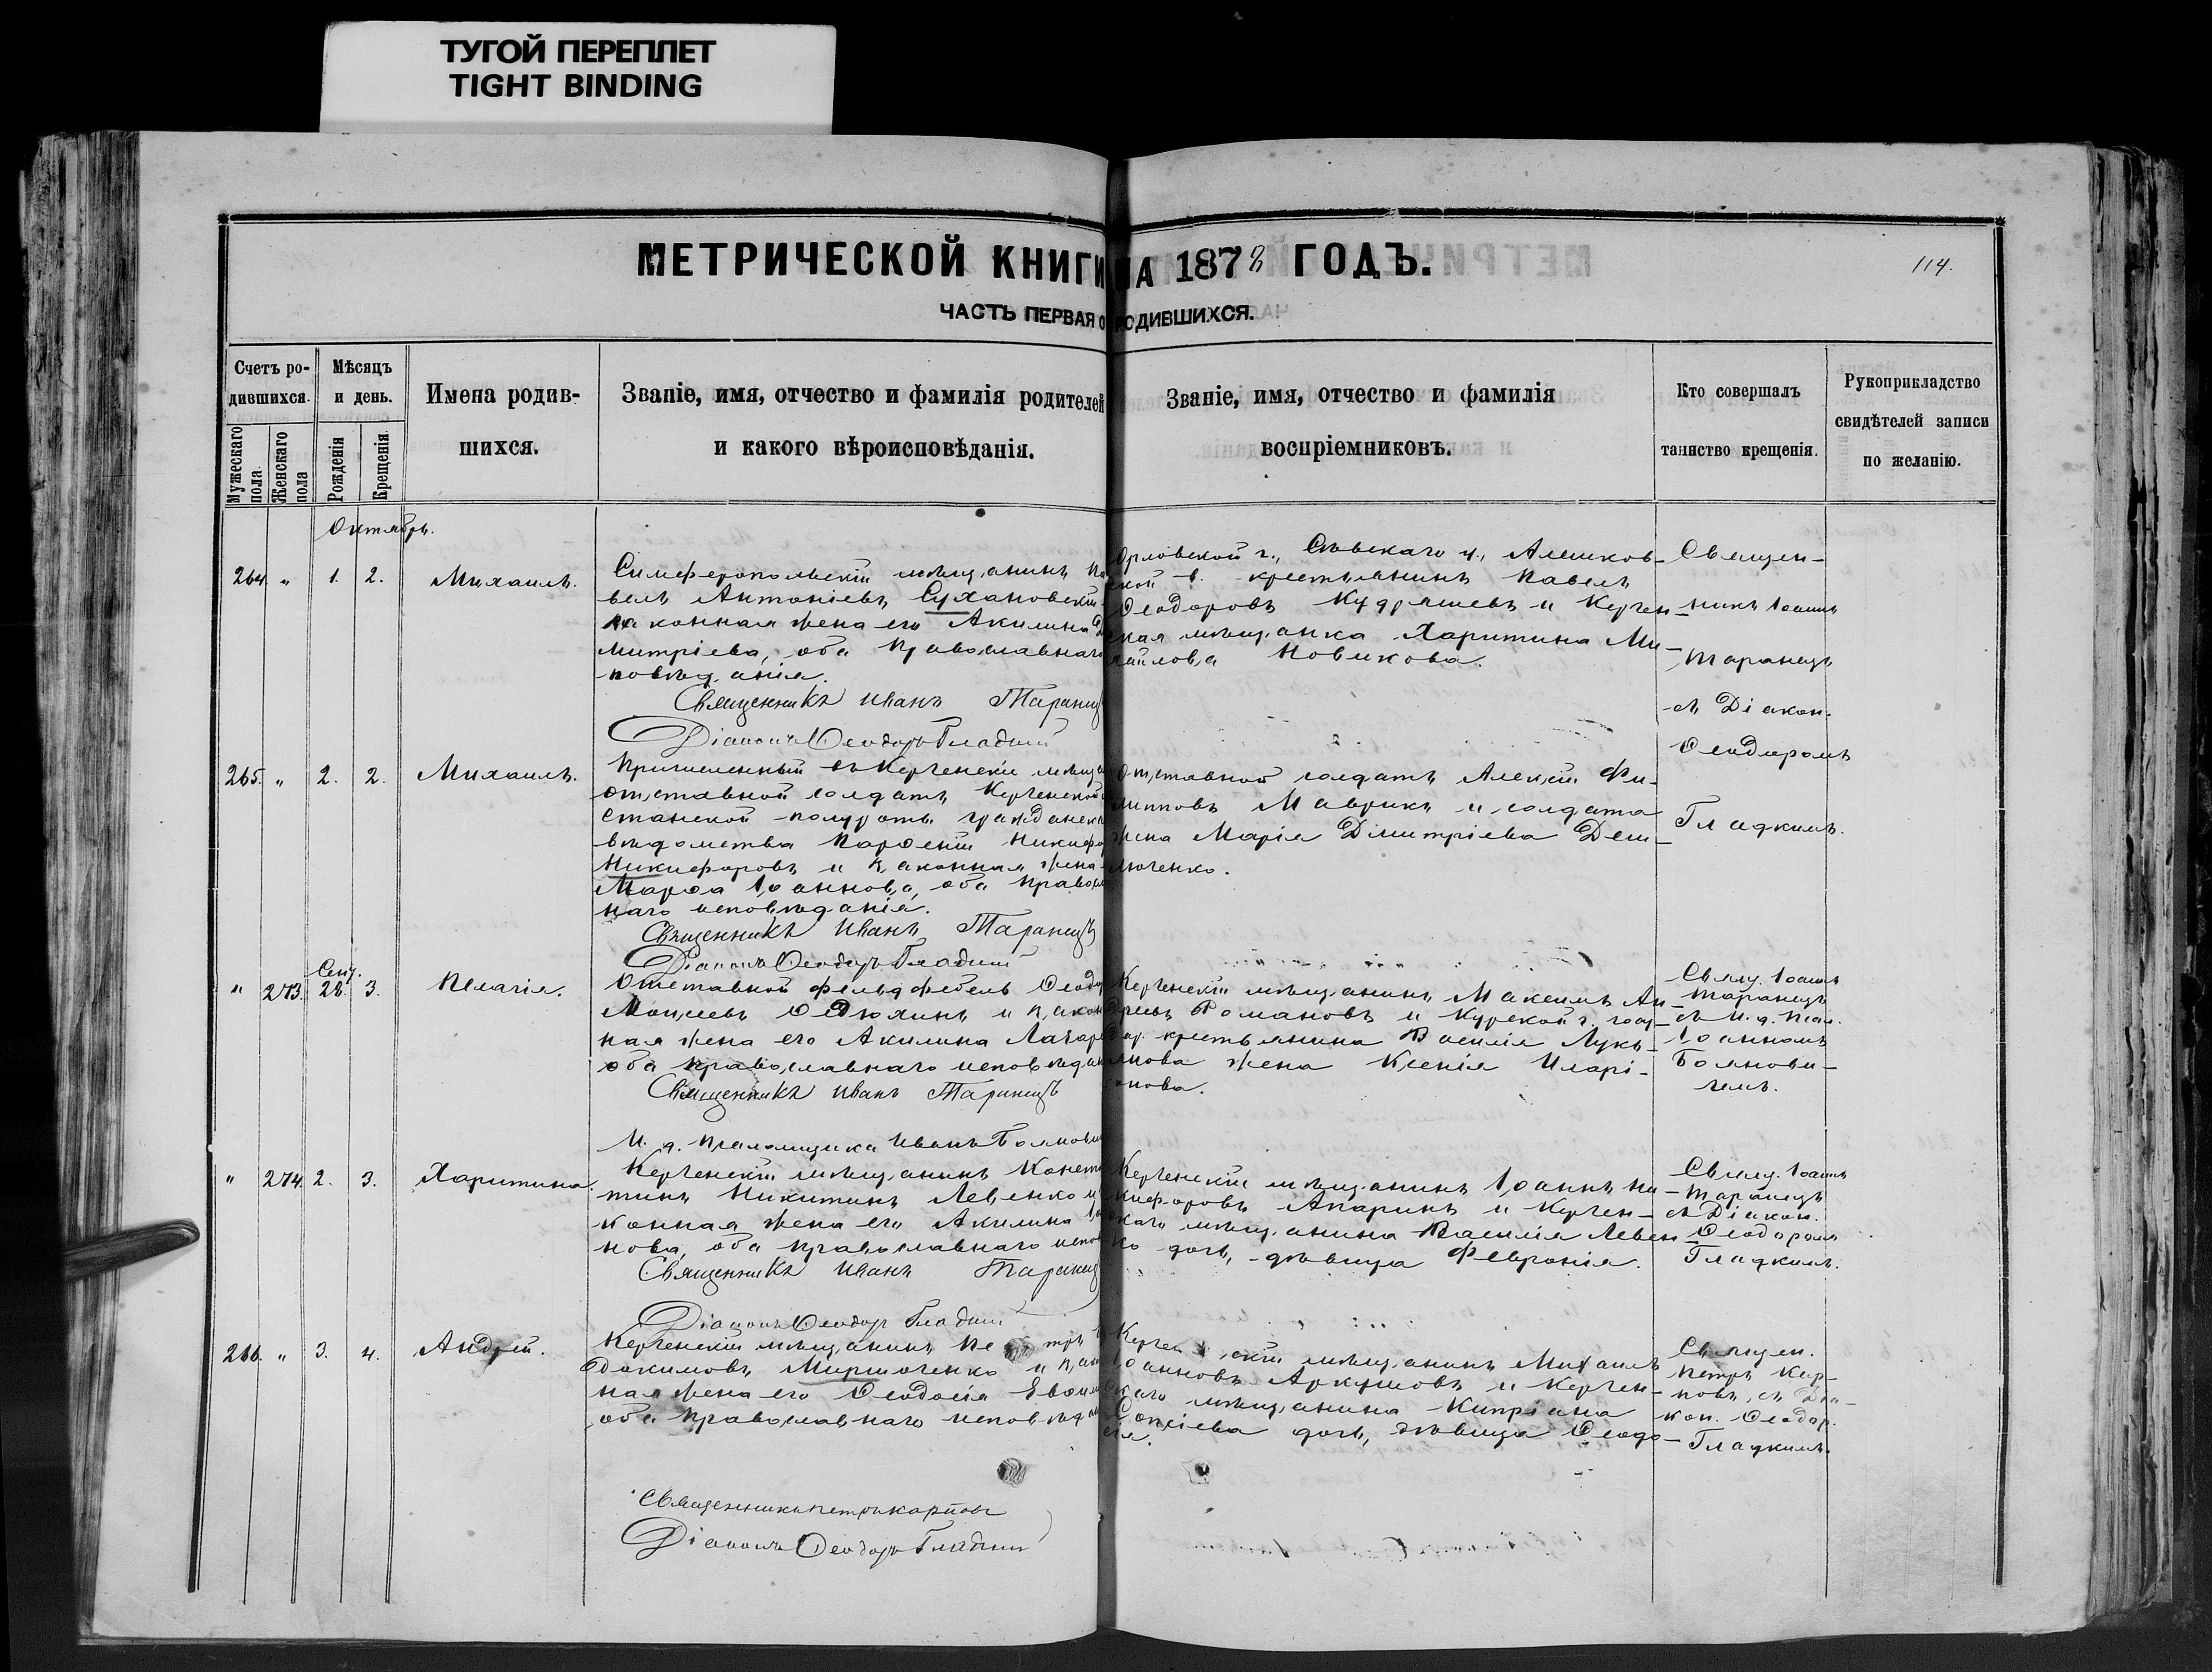 ТУГОЙ ПЕРЕПЛЕТ
TIGHT BINDING
МЕТРИЧЕСКОЙ КНИГИ НА 1878 ГОДЪ.
114.
ЧАСТЬ ПЕРВАЯ О РОДИВШИХСЯ.
Счетъ ро-
дившихся.
Мужескаго пола.
Женскаго пола
Мѣсяцъ
и день.
Рожденія
Крещенія.
Имена родив-
шихся.
Званіе, имя, отчество и фамилія родителей
и какого вѣроисповѣданія.
Званіе, имя, отчество и фамилія
воспріемниковъ.
Кто совершалъ
таинство крещенія.
Рукоприкладство
свидѣтелей записи
по желанію.
Октябрь.
264. " 1. 2. Михаилъ.
Симферопольскій мѣщанинъ Па
велъ Антоніевъ Сухановскій
законная жена его Акилина Д
митріева, оба православнаго
повѣданія.
Священникъ Иванъ Таранец
Діаконъ Ѳеодоръ Гладкій
Орловской г., Сѣвскаго у., Алешков-
ской в. крестьянинъ Павелъ
Ѳеодоровъ Кудряшевъ и Керчен-
ская мѣщанка Харитина Ми-
хайлова Новикова.
Священ-
никъ Іоаннъ
Таранецъ
съ Діакон.
Ѳеодоромъ
Гладкимъ.
265. " 2. 2. Михаилъ.
Причисленный въ Керченскіе мѣщ
отставной солдатъ Керченской
станской полуроты гражданск
вѣдомства Парѳеній Никифо
Никифоровъ и законная жена
Марѳа Іоаннова, оба правосл
наго исповѣданія.
Священникъ Иванъ Таранецъ
Діаконъ Ѳеодоръ Гладкій
Отставной солдатъ Алексій Фи-
липповъ Маврикъ и солдата
жена Марія Димитріева Дем-
люченко.
" 273. Сент. 28. 3. Пелагія.
Отставной фельдфебель Ѳеодо
Моисеевъ и закон
ная жена его Акилина Лазаре
оба православнаго исповѣдан
Священникъ Иванъ Таранецъ
И. д. псаломщика Иванъ Боянови
Керченскій мѣщанинъ Максимъ Ан-
дреевъ Романовъ и Курской г. госу-
дар. крестьянина Василія Лукь-
янова жена Ксенія Иларі-
онова.
Свящ. Іоаннъ
Таранецъ
съ и. д. псал.
Іоанномъ
Боянови-
чемъ.
" 274. 2. 3. Харитина.
Керченскій мѣщанинъ Конста
тинъ Никитинъ Левенко и
конная жена его Акилина Іоа
нова, оба православнаго испов
Священникъ Иванъ Таранец
Діаконъ Ѳеодор Гладкій
Керченскій мѣщанинъ Іоаннъ Ни-
кифоровъ Апаринъ и Керчен-
скаго мѣщанина Василія Левен-
ко дочь, дѣвица Февронія.
Свящ. Іоаннъ
Таранецъ
съ Діакон.
Ѳеодоромъ
Гладкимъ.
266. " 3. 4. Андрей.
Керченскій мѣщанинъ Петръ
Євдокимовъ Мирошоченко и зак
ная жена его Ѳеодосія Евѳим
оба православнаго исповѣдан
Священникъ Петръ Карповъ
Діаконъ Ѳеодоръ Гладкій
Керченскій мѣщанинъ Михаилъ
Іоанновъ Аркушовъ и Керчен-
скаго мѣщанина Кипріана
дочь, дѣвица Ѳеодо-
сія.
Священ.
Петръ Кар-
повъ, съ Діа-
кон. Ѳеодор.
Гладкимъ.